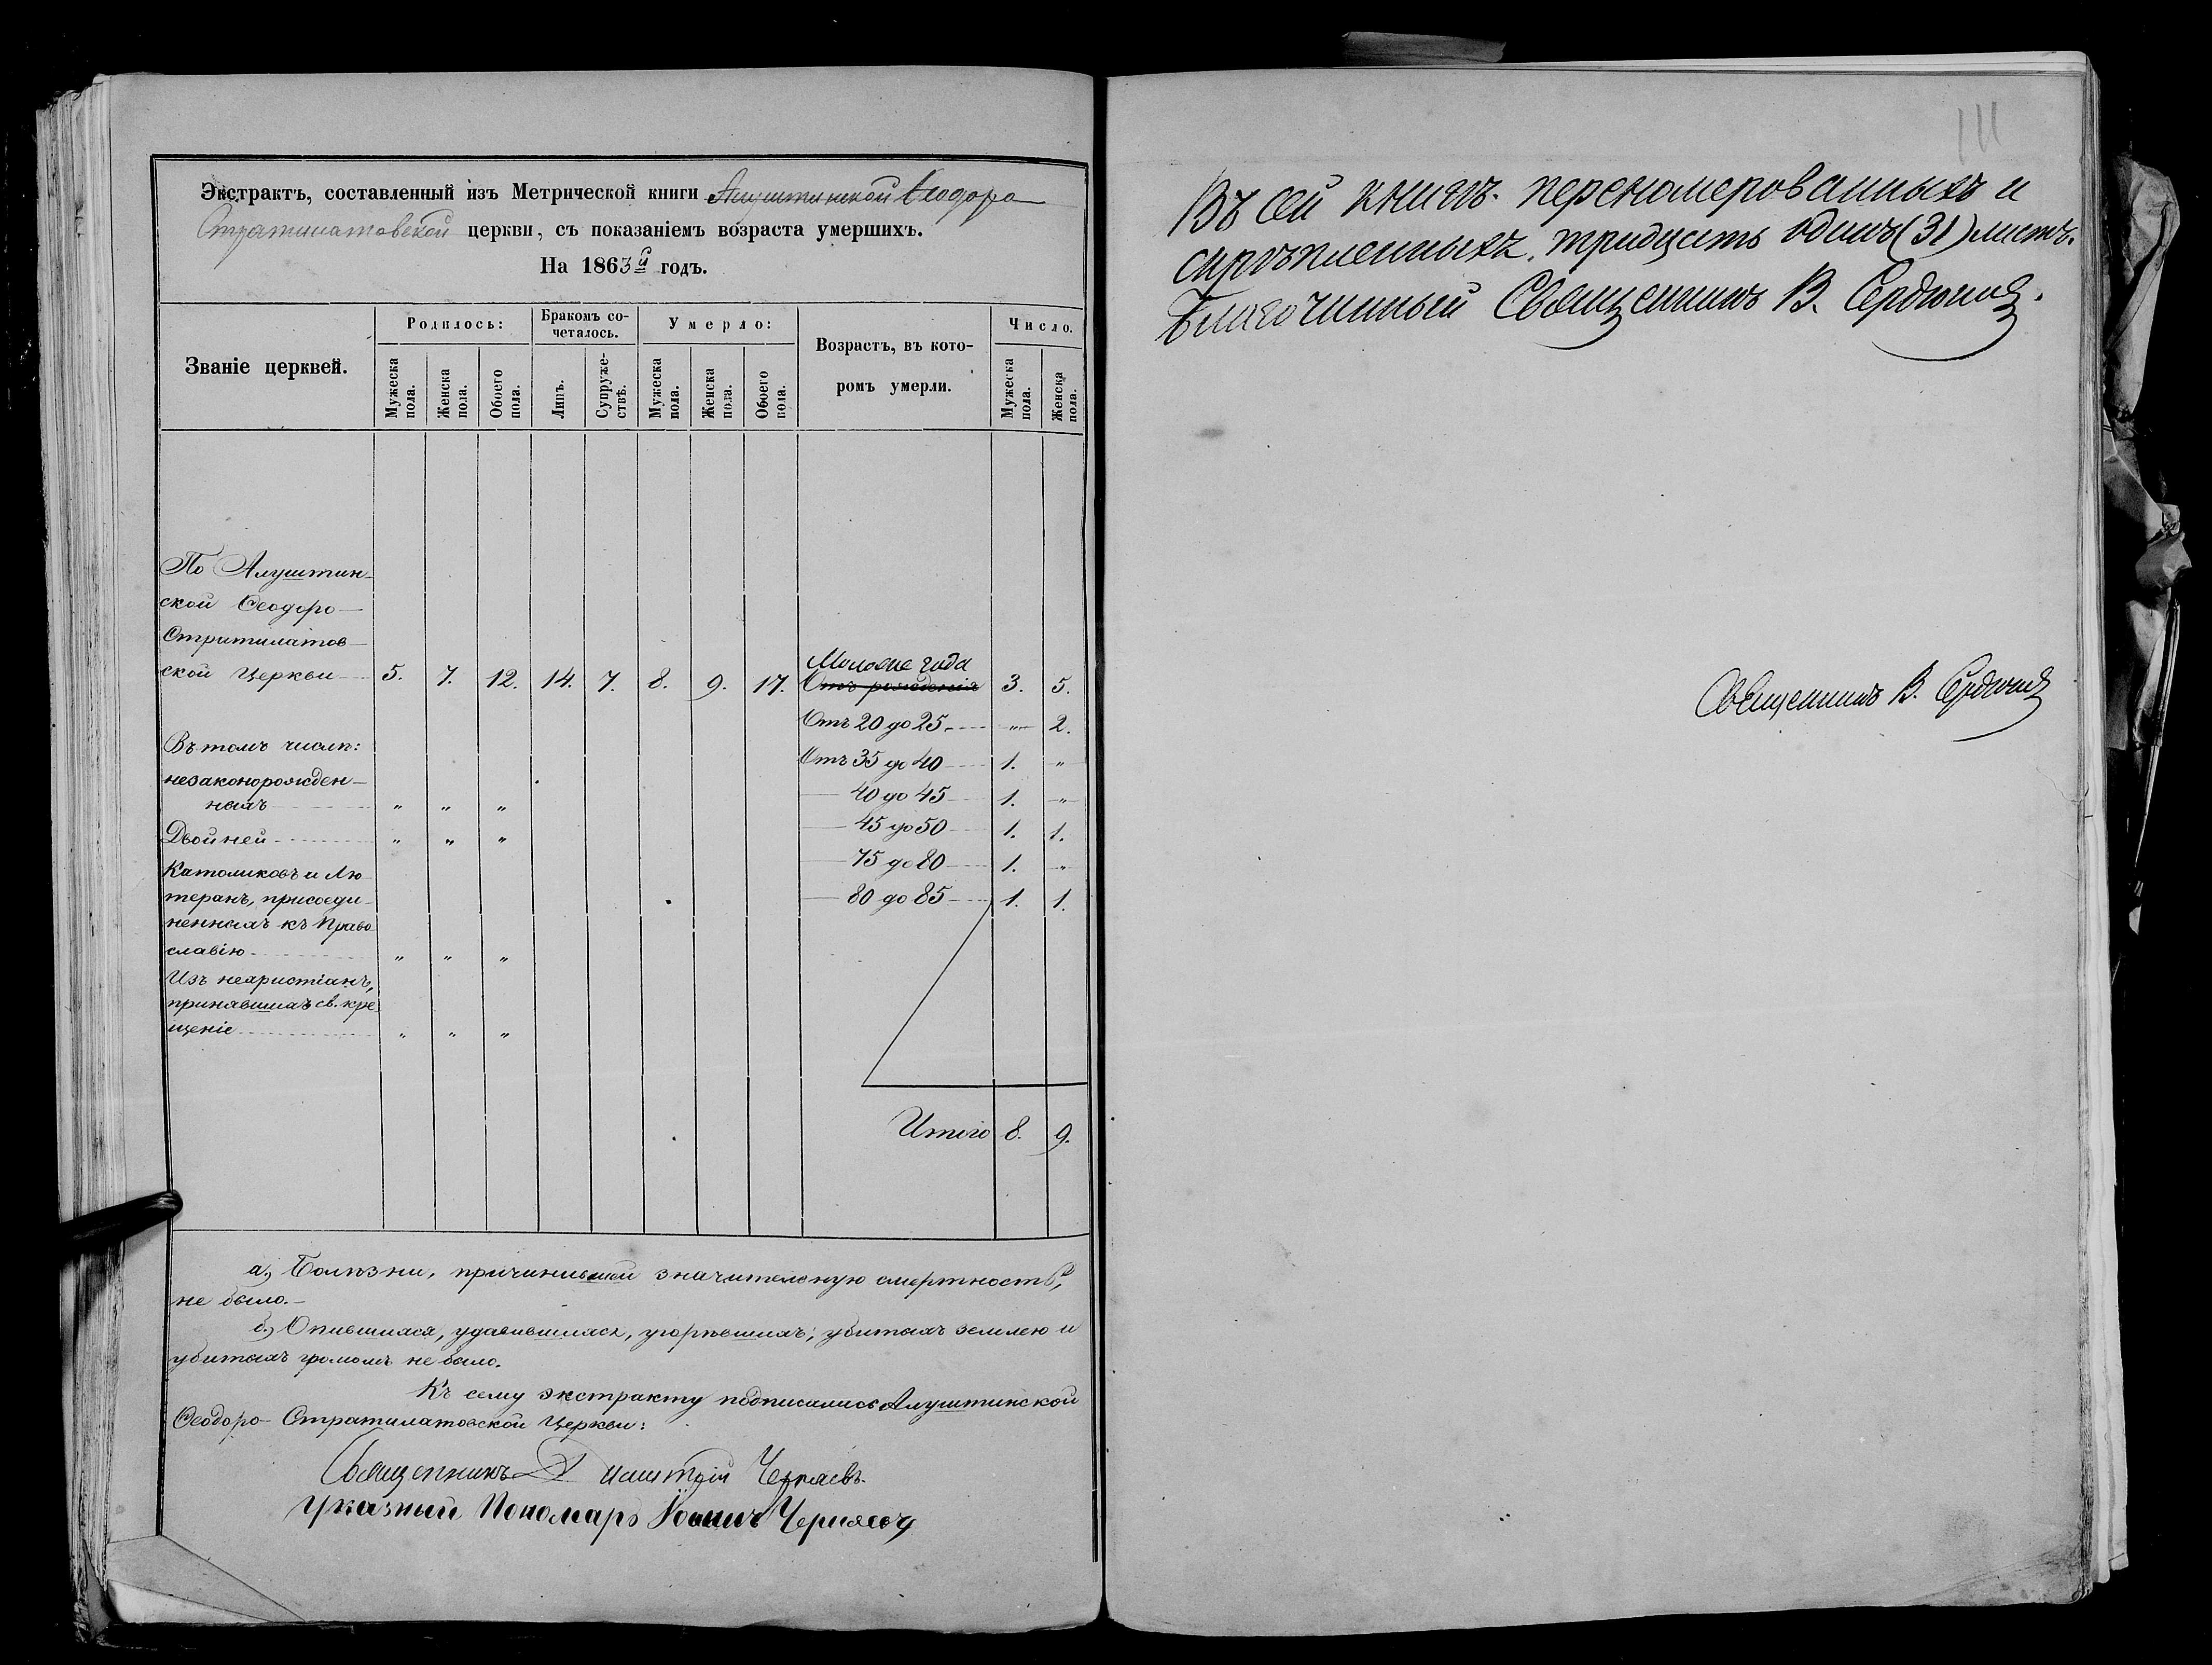 Экстрактъ, составленный изъ Метрической книги Алуштинской Ѳеодоро
Стратилатовской церкви, съ показаніемъ возраста умершихъ.
На 1863й годъ.
Званіе церквей.
Родилось:
Мужеска пола.
Женска пола.
Обоего пола.
Бракомъ со-
четалось.
Лицъ.
Супруже-
ствъ.
Умерло:
Мужеска пола.
Женска пола.
Обоего пола.
Возрастъ, въ кото-
ромъ умерли.
Число.
Мужеска пола.
Женска пола.
По Алуштин-
ской Ѳеодоро-
Стратилатов-
ской Церкви 5. 7. 12. 14. 7. 8. 9. 17.
Моложе года
Отъ рожденія 3. 5.
Отъ 20 до 25 " 2.
Отъ 35 до 40 1. "
40 до 45 1. "
45 до 50 1. 1.
75 до 80 1. "
80 до 85 1. 1.
Итого 8. 9.
Въ томъ числѣ:
незаконорожден-
ныхъ " " "
Двойней " " "
Католиковъ и Лю-
теранъ, присоеди-
ненныхъ къ Право
славію " " "
Изъ нехристіанъ,
принявшихъ св. кре
щеніе " " "
а) Болѣзни, причинившей значительную смертность,
не было.
б) Опившихся, удавившихся, угорѣвшихъ, убитыхъ землею и
убитыхъ громомъ не было.
Къ сему экстракту подписались Алуштинской
Ѳеодоро-Стратилатовской Церкви:
Священникъ Димитрій Черняевъ.
Указный Пономарь Іоаннъ Черняевъ
111
Въ сей книгѣ переномерованныхъ и
скрѣпленныхъ тридцать одинъ (31) листъ.
Благочинный Священникъ В. Сердюковъ.
Священникъ В. Сердюковъ